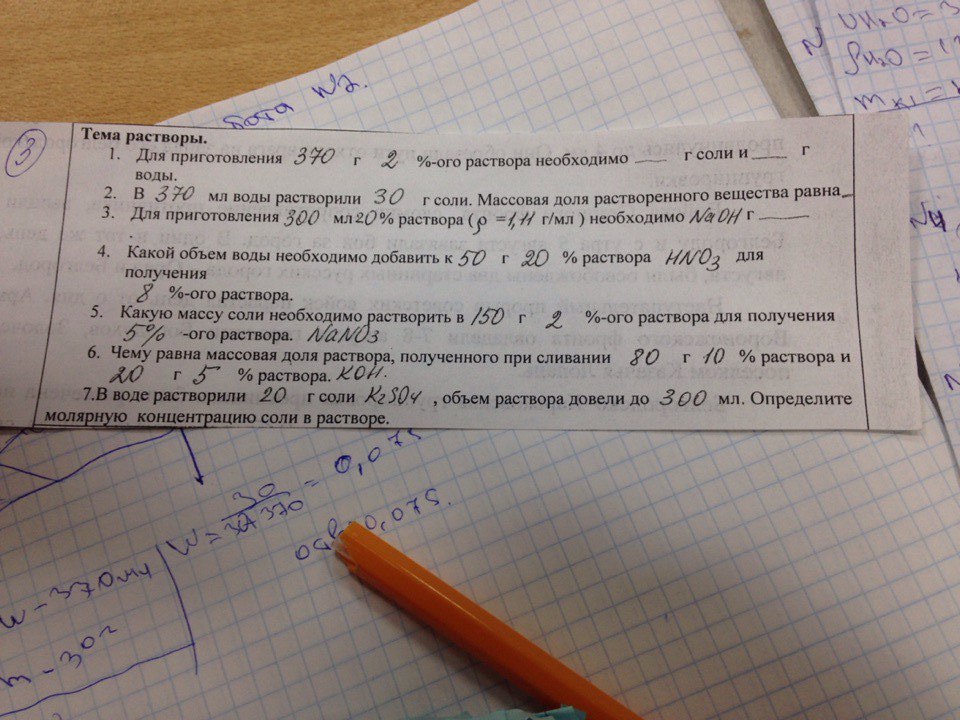 бота N2.
N
ρH₂O =
3
Тема растворы.
1. Для приготовления 370 г 2 %-ого раствора необходимо ____ г соли и ____ г
воды.
2. В 370 мл воды растворили 30 г соли. Массовая доля растворенного вещества равна_
3. Для приготовления 300 мл 20 % раствора (ρ =1,11 г/мл ) необходимо NaOH г ______
.
4. Какой объем воды необходимо добавить к 50 г 20 % раствора HNO₃ для
получения
8 %-ого раствора.
5. Какую массу соли необходимо растворить в 150 г 2 %-ого раствора для получения
5% -ого раствора. NaNO₃
6. Чему равна массовая доля раствора, полученного при сливании 80 г 10 % раствора и
20 г 5 % раствора. KOH.
7.В воде растворили 20 г соли K₂SO₄ , объем раствора довели до 300 мл. Определите
молярную концентрацию соли в растворе.
W = 30 / 30+370 = 0,075
0,075.
- 370 мл
m - 30 г